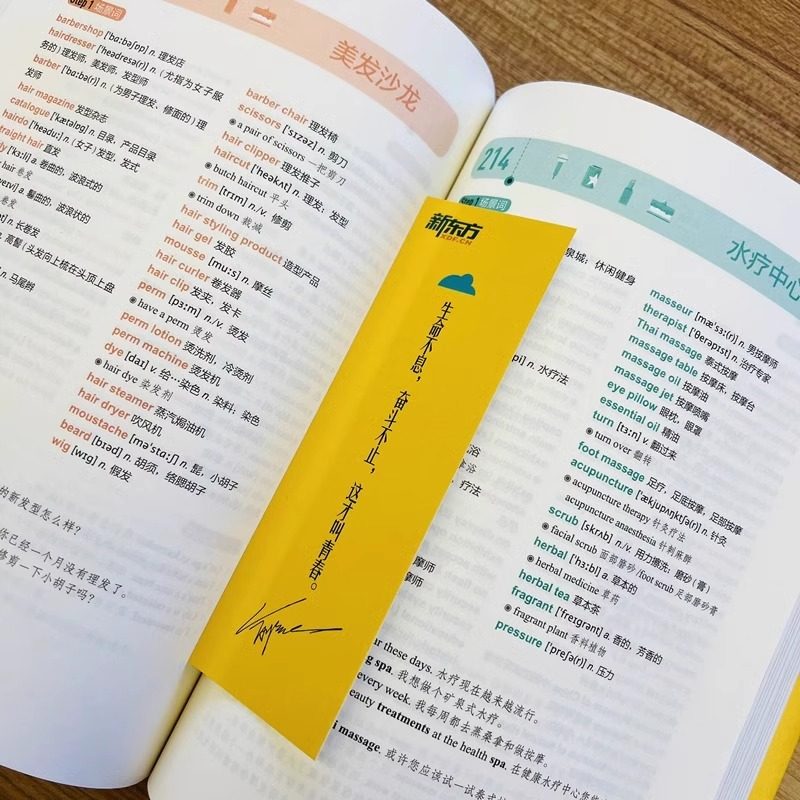 Step 1 场景词
美发沙龙
barbershop ['bɑːbəʃɒp] n. 理发店
hairdresser ['heədresə(r)] n.（尤指为女子服
务的）理发师，美发师，发型师
barber ['bɑːbə(r)] n.（为男子理发、修面的）理
发师
hair magazine 发型杂志
catalogue ['kætəlɒg] n. 目录，产品目录
hairdo ['heəduː] n.（女子）发型，发式
straight hair 直发
a. 卷曲的，波浪式的
hair 卷发
a. 鬈曲的，波浪状的
卷发
n. 长鬈发
n. 高髻（头发向上梳在头顶上盘
n. 马尾辫
barber chair 理发椅
scissors ['sɪzəz] n. 剪刀
a pair of scissors 一把剪刀
hair clipper 理发推子
haircut ['heəkʌt] n. 理发；发型
butch haircut 平头
trim [trɪm] n./v. 修剪
trim down 裁减
hair styling product 造型产品
hair gel 发胶
mousse [muːs] n. 摩丝
hair curler 卷发器
hair clip 发夹，发卡
perm [pɜːm] n./v. 烫发
have a perm 烫发
perm lotion 烫洗剂，冷烫剂
perm machine 烫发机
dye [daɪ] v. 给…染色 n. 染料；染色
hair dye 染发剂
hair steamer 蒸汽焗油机
hair dryer 吹风机
moustache [mə'stɑːʃ] n. 髭，小胡子
beard [bɪəd] n. 胡须，络腮胡子
wig [wɪg] n. 假发
的新发型怎么样？
你已经一个月没有理发了。
修剪一下小胡子吗？
新东方
XDF.CN
生命不息，奋斗不止，这才叫青春。
214
水疗中心
Step 1 场景词
泉城；休闲健身
n. 水疗法
浴
疗法
摩师
摩师
masseur [mæ'sɜː(r)] n. 男按摩师
therapist ['θerəpɪst] n. 治疗专家
Thai massage 泰式按摩
massage table 按摩床，按摩台
massage oil 按摩油
massage jet 按摩喷嘴
eye pillow 眼枕，眼罩
essential oil 精油
turn [tɜːn] v. 翻过来
turn over 翻转
foot massage 足疗，足底按摩，足部按摩
acupuncture ['ækjupʌŋktʃə(r)] n. 针灸
acupuncture therapy 针灸疗法
acupuncture anaesthesia 针刺麻醉
scrub [skrʌb] n./v. 用力擦洗；磨砂（膏）
facial scrub 面部磨砂/foot scrub 足部磨砂膏
herbal ['hɜːbl] a. 草本的
herbal medicine 草药
herbal tea 草本茶
fragrant ['freɪgrənt] a. 香的，芳香的
fragrant plant 香料植物
pressure ['preʃə(r)] n. 压力
these days. 水疗现在越来越流行。
spa. 我想做个矿泉式水疗。
every week. 我每周都去蒸桑拿和做按摩。
beauty treatments at the health spa. 在健康水疗中心您
massage, 或许您应该试一试泰式